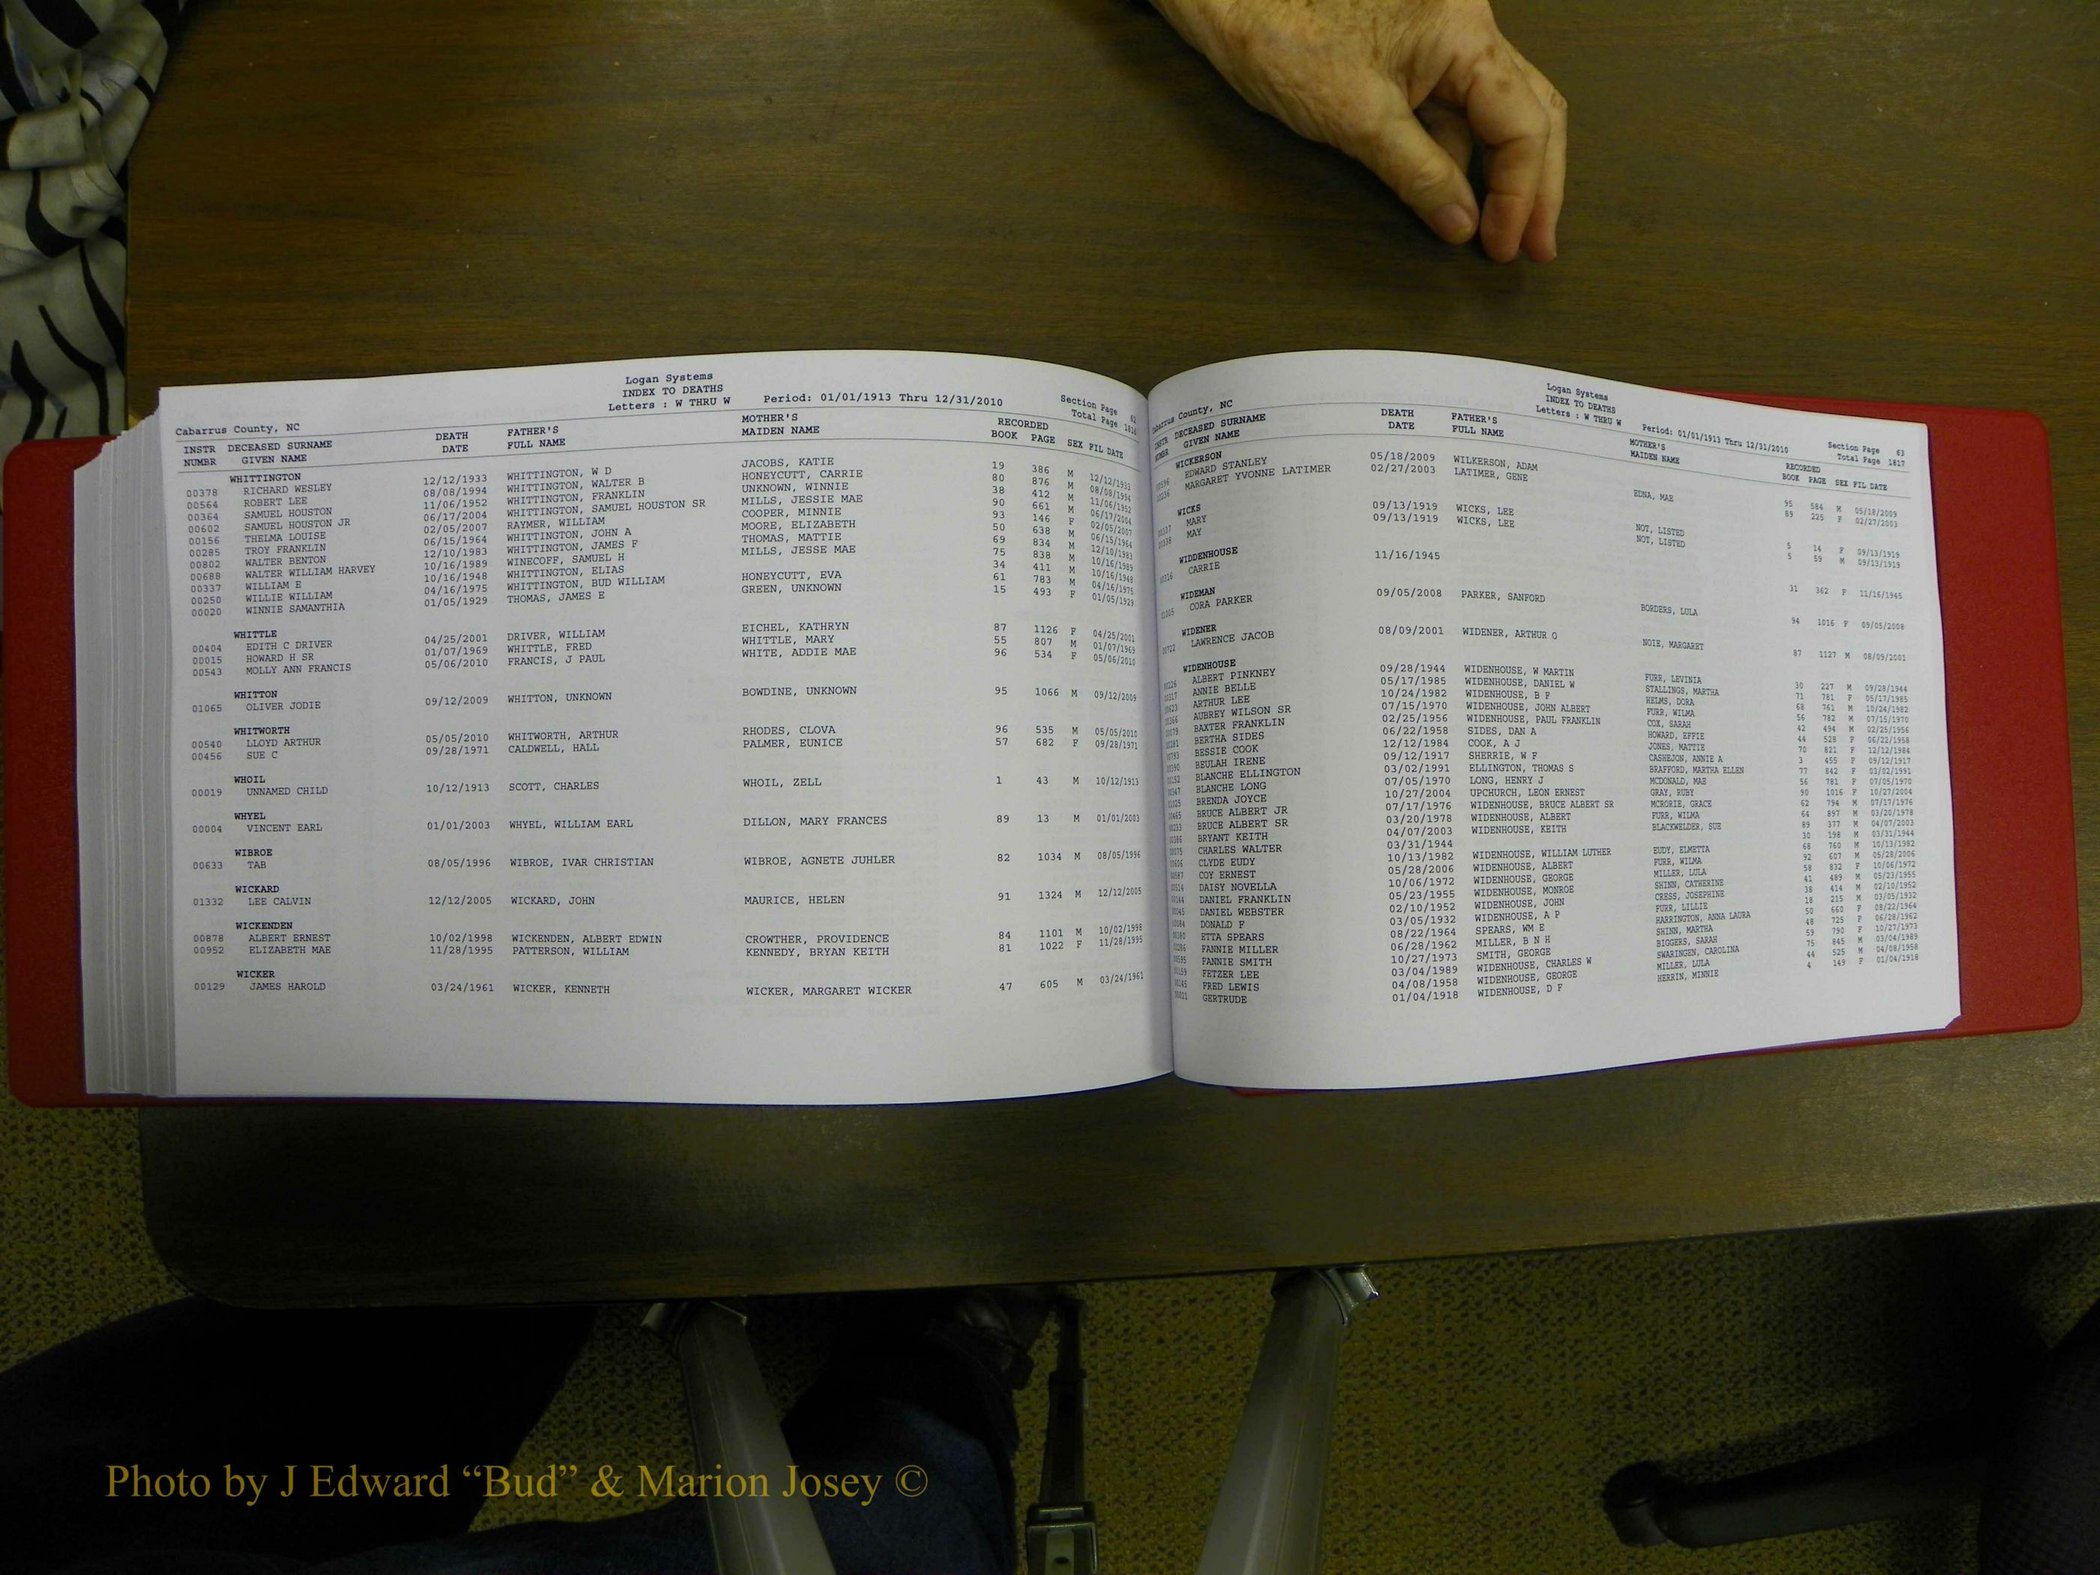 Logan Systems
INDEX TO DEATHS
Letters : W THRU W Period: 01/01/1913 Thru 12/31/2010
Section Page 62
Total Page 1816
Cabarrus County, NC
INSTR DECEASED SURNAME DEATH FATHER'S MOTHER'S RECORDED
NUMBR GIVEN NAME DATE FULL NAME MAIDEN NAME BOOK PAGE SEX FIL DATE
WHITTINGTON
00378 RICHARD WESLEY 12/12/1933 WHITTINGTON, W D JACOBS, KATIE 19 386 M 12/12/1933
00564 ROBERT LEE 08/08/1994 WHITTINGTON, WALTER B HONEYCUTT, CARRIE 80 876 M 08/08/1994
00364 SAMUEL HOUSTON 11/06/1952 WHITTINGTON, FRANKLIN UNKNOWN, WINNIE 38 412 M 11/06/1952
00602 SAMUEL HOUSTON JR 06/17/2004 WHITTINGTON, SAMUEL HOUSTON SR MILLS, JESSIE MAE 90 661 M 06/17/2004
00156 THELMA LOUISE 02/05/2007 RAYMER, WILLIAM COOPER, MINNIE 93 146 F 02/05/2007
00285 TROY FRANKLIN 06/15/1964 WHITTINGTON, JOHN A MOORE, ELIZABETH 50 638 M 06/15/1964
00802 WALTER BENTON 12/10/1983 WHITTINGTON, JAMES F THOMAS, MATTIE 69 834 M 12/10/1983
00688 WALTER WILLIAM HARVEY 10/16/1989 WINECOFF, SAMUEL H MILLS, JESSE MAE 75 838 M 10/16/1989
00337 WILLIAM E 10/16/1948 WHITTINGTON, ELIAS 34 411 M 10/16/1948
00250 WILLIE WILLIAM 04/16/1975 WHITTINGTON, BUD WILLIAM HONEYCUTT, EVA 61 783 M 04/16/1975
00020 WINNIE SAMANTHIA 01/05/1929 THOMAS, JAMES E GREEN, UNKNOWN 15 493 F 01/05/1929
WHITTLE
00404 EDITH C DRIVER 04/25/2001 DRIVER, WILLIAM EICHEL, KATHRYN 87 1126 F 04/25/2001
00015 HOWARD H SR 01/07/1969 WHITTLE, FRED WHITTLE, MARY 55 807 M 01/07/1969
00543 MOLLY ANN FRANCIS 05/06/2010 FRANCIS, J PAUL WHITE, ADDIE MAE 96 534 F 05/06/2010
WHITTON
01065 OLIVER JODIE 09/12/2009 WHITTON, UNKNOWN BOWDINE, UNKNOWN 95 1066 M 09/12/2009
WHITWORTH
00540 LLOYD ARTHUR 05/05/2010 WHITWORTH, ARTHUR RHODES, CLOVA 96 535 M 05/05/2010
00456 SUE C 09/28/1971 CALDWELL, HALL PALMER, EUNICE 57 682 F 09/28/1971
WHOIL
00019 UNNAMED CHILD 10/12/1913 SCOTT, CHARLES WHOIL, ZELL 1 43 M 10/12/1913
WHYEL
00004 VINCENT EARL 01/01/2003 WHYEL, WILLIAM EARL DILLON, MARY FRANCES 89 13 M 01/01/2003
WIBROE
00633 TAB 08/05/1996 WIBROE, IVAR CHRISTIAN WIBROE, AGNETE JUHLER 82 1034 M 08/05/1996
WICKARD
01332 LEE CALVIN 12/12/2005 WICKARD, JOHN MAURICE, HELEN 91 1324 M 12/12/2005
WICKENDEN
00878 ALBERT ERNEST 10/02/1998 WICKENDEN, ALBERT EDWIN CROWTHER, PROVIDENCE 84 1101 M 10/02/1998
00952 ELIZABETH MAE 11/28/1995 PATTERSON, WILLIAM KENNEDY, BRYAN KEITH 81 1022 F 11/28/1995
WICKER
00129 JAMES HAROLD 03/24/1961 WICKER, KENNETH WICKER, MARGARET WICKER 47 605 M 03/24/1961
Logan Systems
INDEX TO DEATHS
Letters : W THRU W Period: 01/01/1913 Thru 12/31/2010
Section Page 63
Total Page 1817
Cabarrus County, NC
INSTR DECEASED SURNAME DEATH FATHER'S MOTHER'S RECORDED
NUMBR GIVEN NAME DATE FULL NAME MAIDEN NAME BOOK PAGE SEX FIL DATE
WICKERSON
EDWARD STANLEY 05/18/2009 WILKERSON, ADAM EDNA, MAE 95 584 M 05/18/2009
MARGARET YVONNE LATIMER 02/27/2003 LATIMER, GENE 89 225 F 02/27/2003
WICKS
MARY 09/13/1919 WICKS, LEE NOT, LISTED 5 14 F 09/13/1919
MAY 09/13/1919 WICKS, LEE NOT, LISTED 5 59 M 09/13/1919
WIDDENHOUSE
CARRIE 11/16/1945 31 362 F 11/16/1945
WIDEMAN
CORA PARKER 09/05/2008 PARKER, SANFORD BORDERS, LULA 94 1016 F 09/05/2008
WIDENER
LAWRENCE JACOB 08/09/2001 WIDENER, ARTHUR O NOIE, MARGARET 87 1127 M 08/09/2001
WIDENHOUSE
ALBERT PINKNEY 09/28/1944 WIDENHOUSE, W MARTIN FURR, LEVINIA 30 227 M 09/28/1944
ANNIE BELLE 05/17/1985 WIDENHOUSE, DANIEL W STALLINGS, MARTHA 71 781 F 05/17/1985
ARTHUR LEE 10/24/1982 WIDENHOUSE, B F HELMS, DORA 68 761 M 10/24/1982
AUBREY WILSON SR 07/15/1970 WIDENHOUSE, JOHN ALBERT FURR, WILMA 56 782 M 07/15/1970
BAXTER FRANKLIN 02/25/1956 WIDENHOUSE, PAUL FRANKLIN COX, SARAH 42 494 M 02/25/1956
BERTHA SIDES 06/22/1958 SIDES, DAN A HOWARD, EFFIE 44 528 F 06/22/1958
BESSIE COOK 12/12/1984 COOK, A J JONES, MATTIE 70 821 F 12/12/1984
BEULAH IRENE 09/12/1917 SHERRIE, W F CASHEJON, ANNIE A 3 455 F 09/12/1917
BLANCHE ELLINGTON 03/02/1991 ELLINGTON, THOMAS S BRAFFORD, MARTHA ELLEN 77 842 F 03/02/1991
BLANCHE LONG 07/05/1970 LONG, HENRY J MCDONALD, MAE 56 781 F 07/05/1970
BRENDA JOYCE 10/27/2004 UPCHURCH, LEON ERNEST GRAY, RUBY 90 1016 F 10/27/2004
BRUCE ALBERT JR 07/17/1976 WIDENHOUSE, BRUCE ALBERT SR MCRORIE, GRACE 62 794 M 07/17/1976
BRUCE ALBERT SR 03/20/1978 WIDENHOUSE, ALBERT FURR, WILMA 64 897 M 03/20/1978
BRYANT KEITH 04/07/2003 WIDENHOUSE, KEITH BLACKWELDER, SUE 89 377 M 04/07/2003
CHARLES WALTER 03/31/1944 30 198 M 03/31/1944
CLYDE EUDY 10/13/1982 WIDENHOUSE, WILLIAM LUTHER EUDY, ELMETTA 68 760 M 10/13/1982
COY ERNEST 05/28/2006 WIDENHOUSE, ALBERT FURR, WILMA 92 607 M 05/28/2006
DAISY NOVELLA 10/06/1972 WIDENHOUSE, GEORGE MILLER, LULA 58 832 F 10/06/1972
DANIEL FRANKLIN 05/23/1955 WIDENHOUSE, MONROE SHINN, CATHERINE 41 489 M 05/23/1955
DANIEL WEBSTER 02/10/1952 WIDENHOUSE, JOHN CRESS, JOSEPHINE 38 414 M 02/10/1952
DONALD F 03/05/1932 WIDENHOUSE, A P FURR, LILLIE 18 215 M 03/05/1932
ETTA SPEARS 08/22/1964 SPEARS, WM E HARRINGTON, ANNA LAURA 50 660 F 08/22/1964
FANNIE MILLER 06/28/1962 MILLER, B N H SHINN, MARTHA 48 725 F 06/28/1962
FANNIE SMITH 10/27/1973 SMITH, GEORGE BIGGERS, SARAH 59 790 F 10/27/1973
FETZER LEE 03/04/1989 WIDENHOUSE, CHARLES W SWARINGEN, CAROLINA 75 845 M 03/04/1989
FRED LEWIS 04/08/1958 WIDENHOUSE, GEORGE MILLER, LULA 44 525 M 04/08/1958
GERTRUDE 01/04/1918 WIDENHOUSE, D F HERRIN, MINNIE 4 149 F 01/04/1918
Photo by J Edward “Bud” & Marion Josey ©